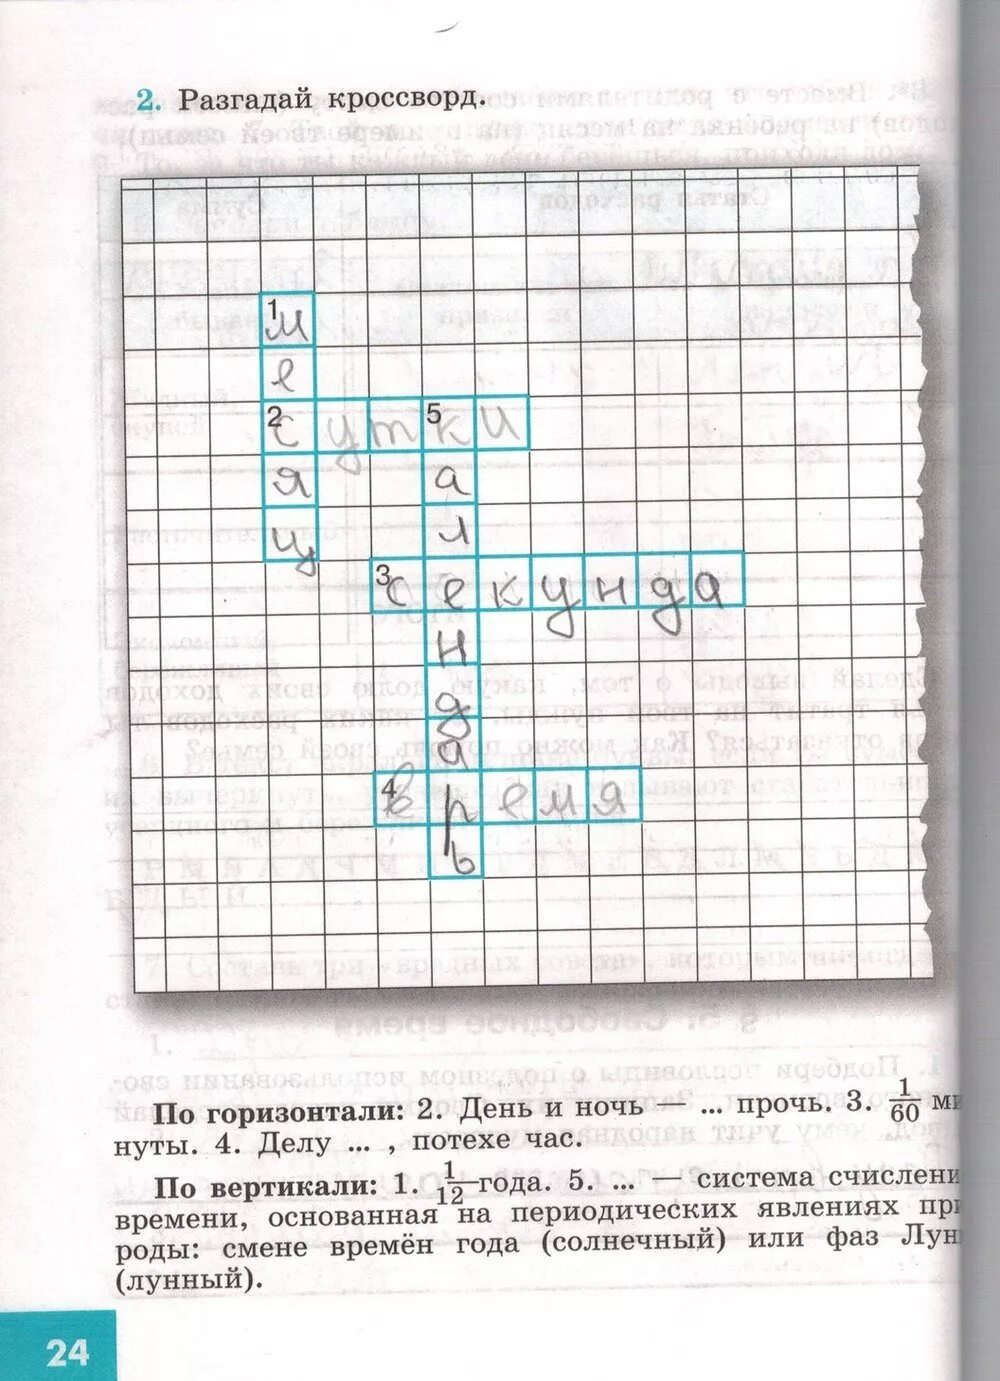 2. Разгадай кроссворд.
1
м
е
2 5
с у т к и
я а
ц л
3
с е к у н д а
н
д
а
4
в р е м я
ь
По горизонтали: 2. День и ночь — ... прочь. 3. 1/60 ми
нуты. 4. Делу ... , потехе час.
По вертикали: 1. 1/12 года. 5. ... — система счислени
времени, основанная на периодических явлениях при
роды: смене времён года (солнечный) или фаз Лун
(лунный).
24